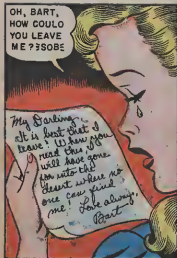 OH, BART,
HOW COULD
YOU LEAVE
ME? ƧSOBƐ
My Darling
It is best that I
leave! When you
read this, I
will have gone
far into the
desert where no
one can find
me! Love always,
Bart